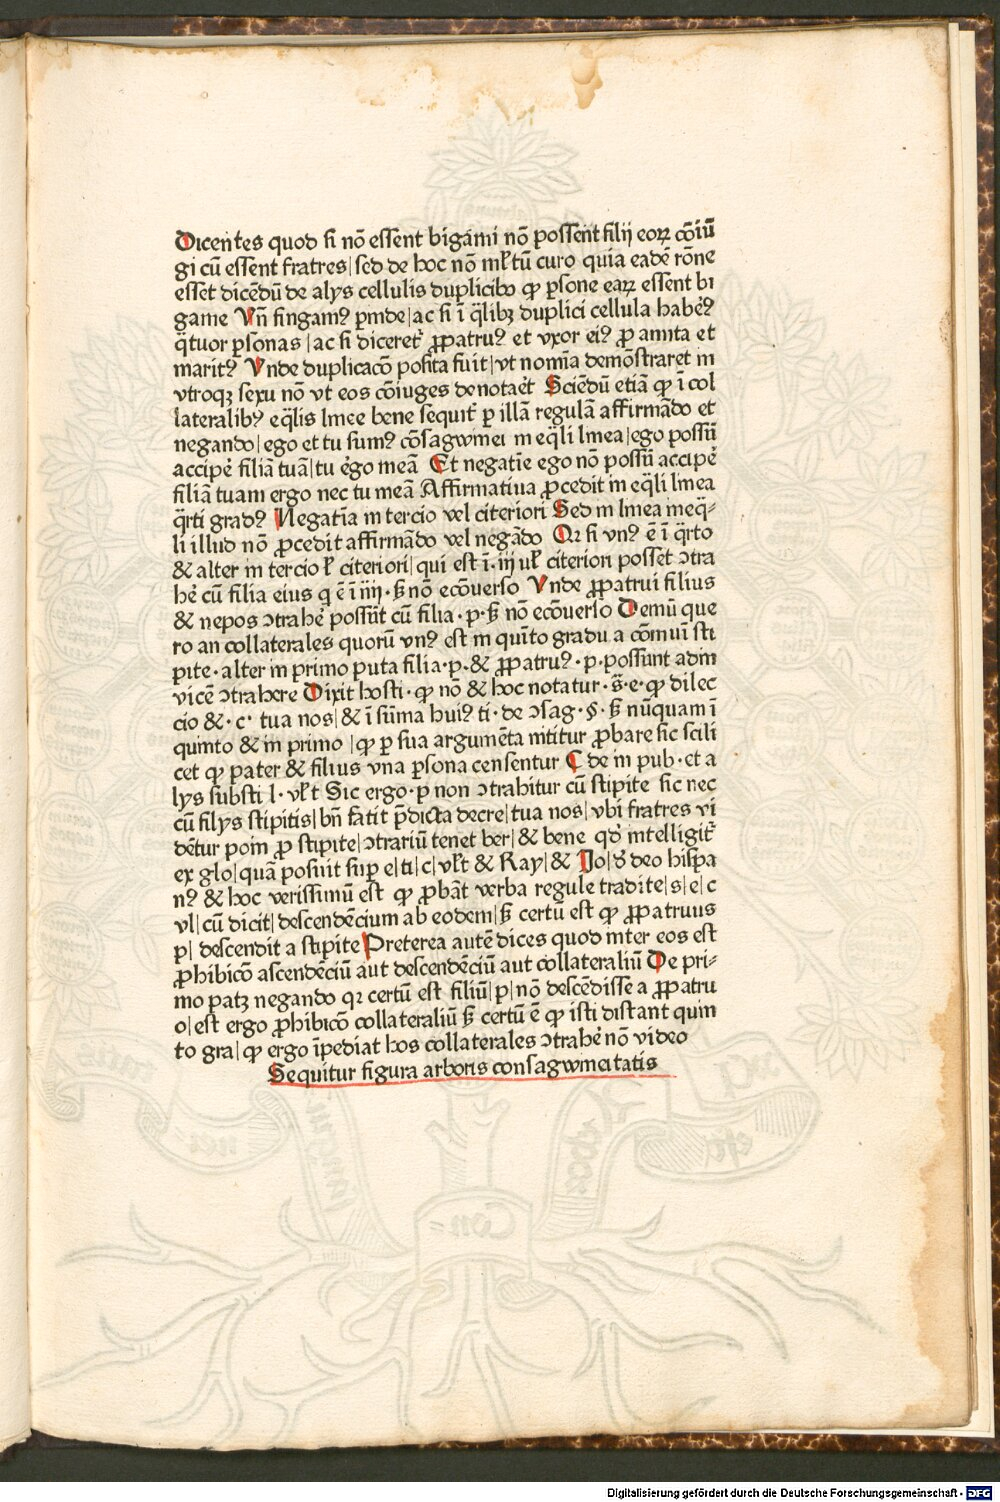 Dicentes quod si nō essent bigami nō possent filij eoꝝ cōiū
gi cū essent fratres|sed de hoc nō ml̄tū curo quia eadē rōne
esset dicēdū de alys cellulis duplicibꝰ ꝙ ꝑsone eaꝝ essent bi
game Vn̄ fingamꝰ ꝑinde|ac si ī q̄libꝫ duplici cellula habeꝰ
q̄tuor ꝑsonas|ac si diceret ꝓpatruꝰ et vxor eiꝰ ꝓ amita et
maritꝰ Vnde duplicacō posita fuit|vt nomīa demōstraret in
vtroqꝫ sexu nō vt eos cōiuges denotaēt Sciēdū etiā ꝙ ī col
lateralibꝰ eq̄lis linee bene sequit̄ ꝑ illā regulā affirmādo et
negando|ego et tu sumꝰ cōsagwinei in eq̄li linea|ego possū
acciꝑe filiā tuā|tu ergo meā Et negatīe ego nō possū acciꝑe
filiā tuam ergo nec tu meā Affirmatiua ꝓcedit in eq̄li linea
q̄rti gradꝰ Negatīa in tercio vel citeriori Sed in linea ineq̄-
li illud nō ꝓcedit affirmādo vel negādo Qꝛ si vnꝰ ē ī q̄rto
& alter in tercio ł citeriori|qui est ī·iij uł citeriori posset ↄtra
hē cū filia eius q ē ī iiij·ꝭ nō ecōuerso Vnde ꝓpatrui filius
& nepos ↄtrahē possūt cū filia·p·ꝭ nō ecōuerso Demū que
ro an collaterales quorū vnꝰ est in quīto gradu a cōmuī sti
pite·alter in primo puta filia·p·& ꝓpatruꝰ·p·possunt adin
vicē ↄtrahere Dixit hosti·ꝙ nō & hoc notatur·s̄·e·ꝙ dilec
cio &·c·tua nos|& ī sūma huiꝰ ti·de ↄsag·§·ꝭ nūquam ī
quinto & in primo|ꝙ ꝑ sua argumēta nititur ꝓbare sic scili
cet ꝙ pater & filius vna ꝑsona censentur C de in pub·et a
lys substi l·vl̄t Sic ergo·p non ↄtrahitur cū stipite sic nec
cū filys stipitis|bn̄ fatit p̄dicta decre|tua nos|vbi fratres vi
dētur poīn ꝓ stipite|ↄtrariū tenet ber|& bene qđ intelligit̄
ex glo|quā posuit suꝑ e|ti|c|vl̄t & Ray|& Jo|đ deo hispa
nꝰ & hoc verissimū est ꝙ ꝓbāt verba regule tradite|s|e|c
vl|cū dicit|descendēcium ab eodem|ꝭ certū est ꝙ ꝓpatruus
p|descendit a stipite Preterea autē dices quod inter eos est
ꝓhibicō ascendēciū aut descendēciū aut collateraliū De pri-
mo patꝫ negando qꝛ certū est filiū|p|nō descēdisse a ꝓpatru
o|est ergo ꝓhibicō collateraliū ꝭ certū ē ꝙ isti distant quin
to gra|ꝙ ergo īpediat hos collaterales ↄtrahē nō video
Sequitur figura arboris consagwineitatis
Digitalisierung gefördert durch die Deutsche Forschungsgemeinschaft - DFG